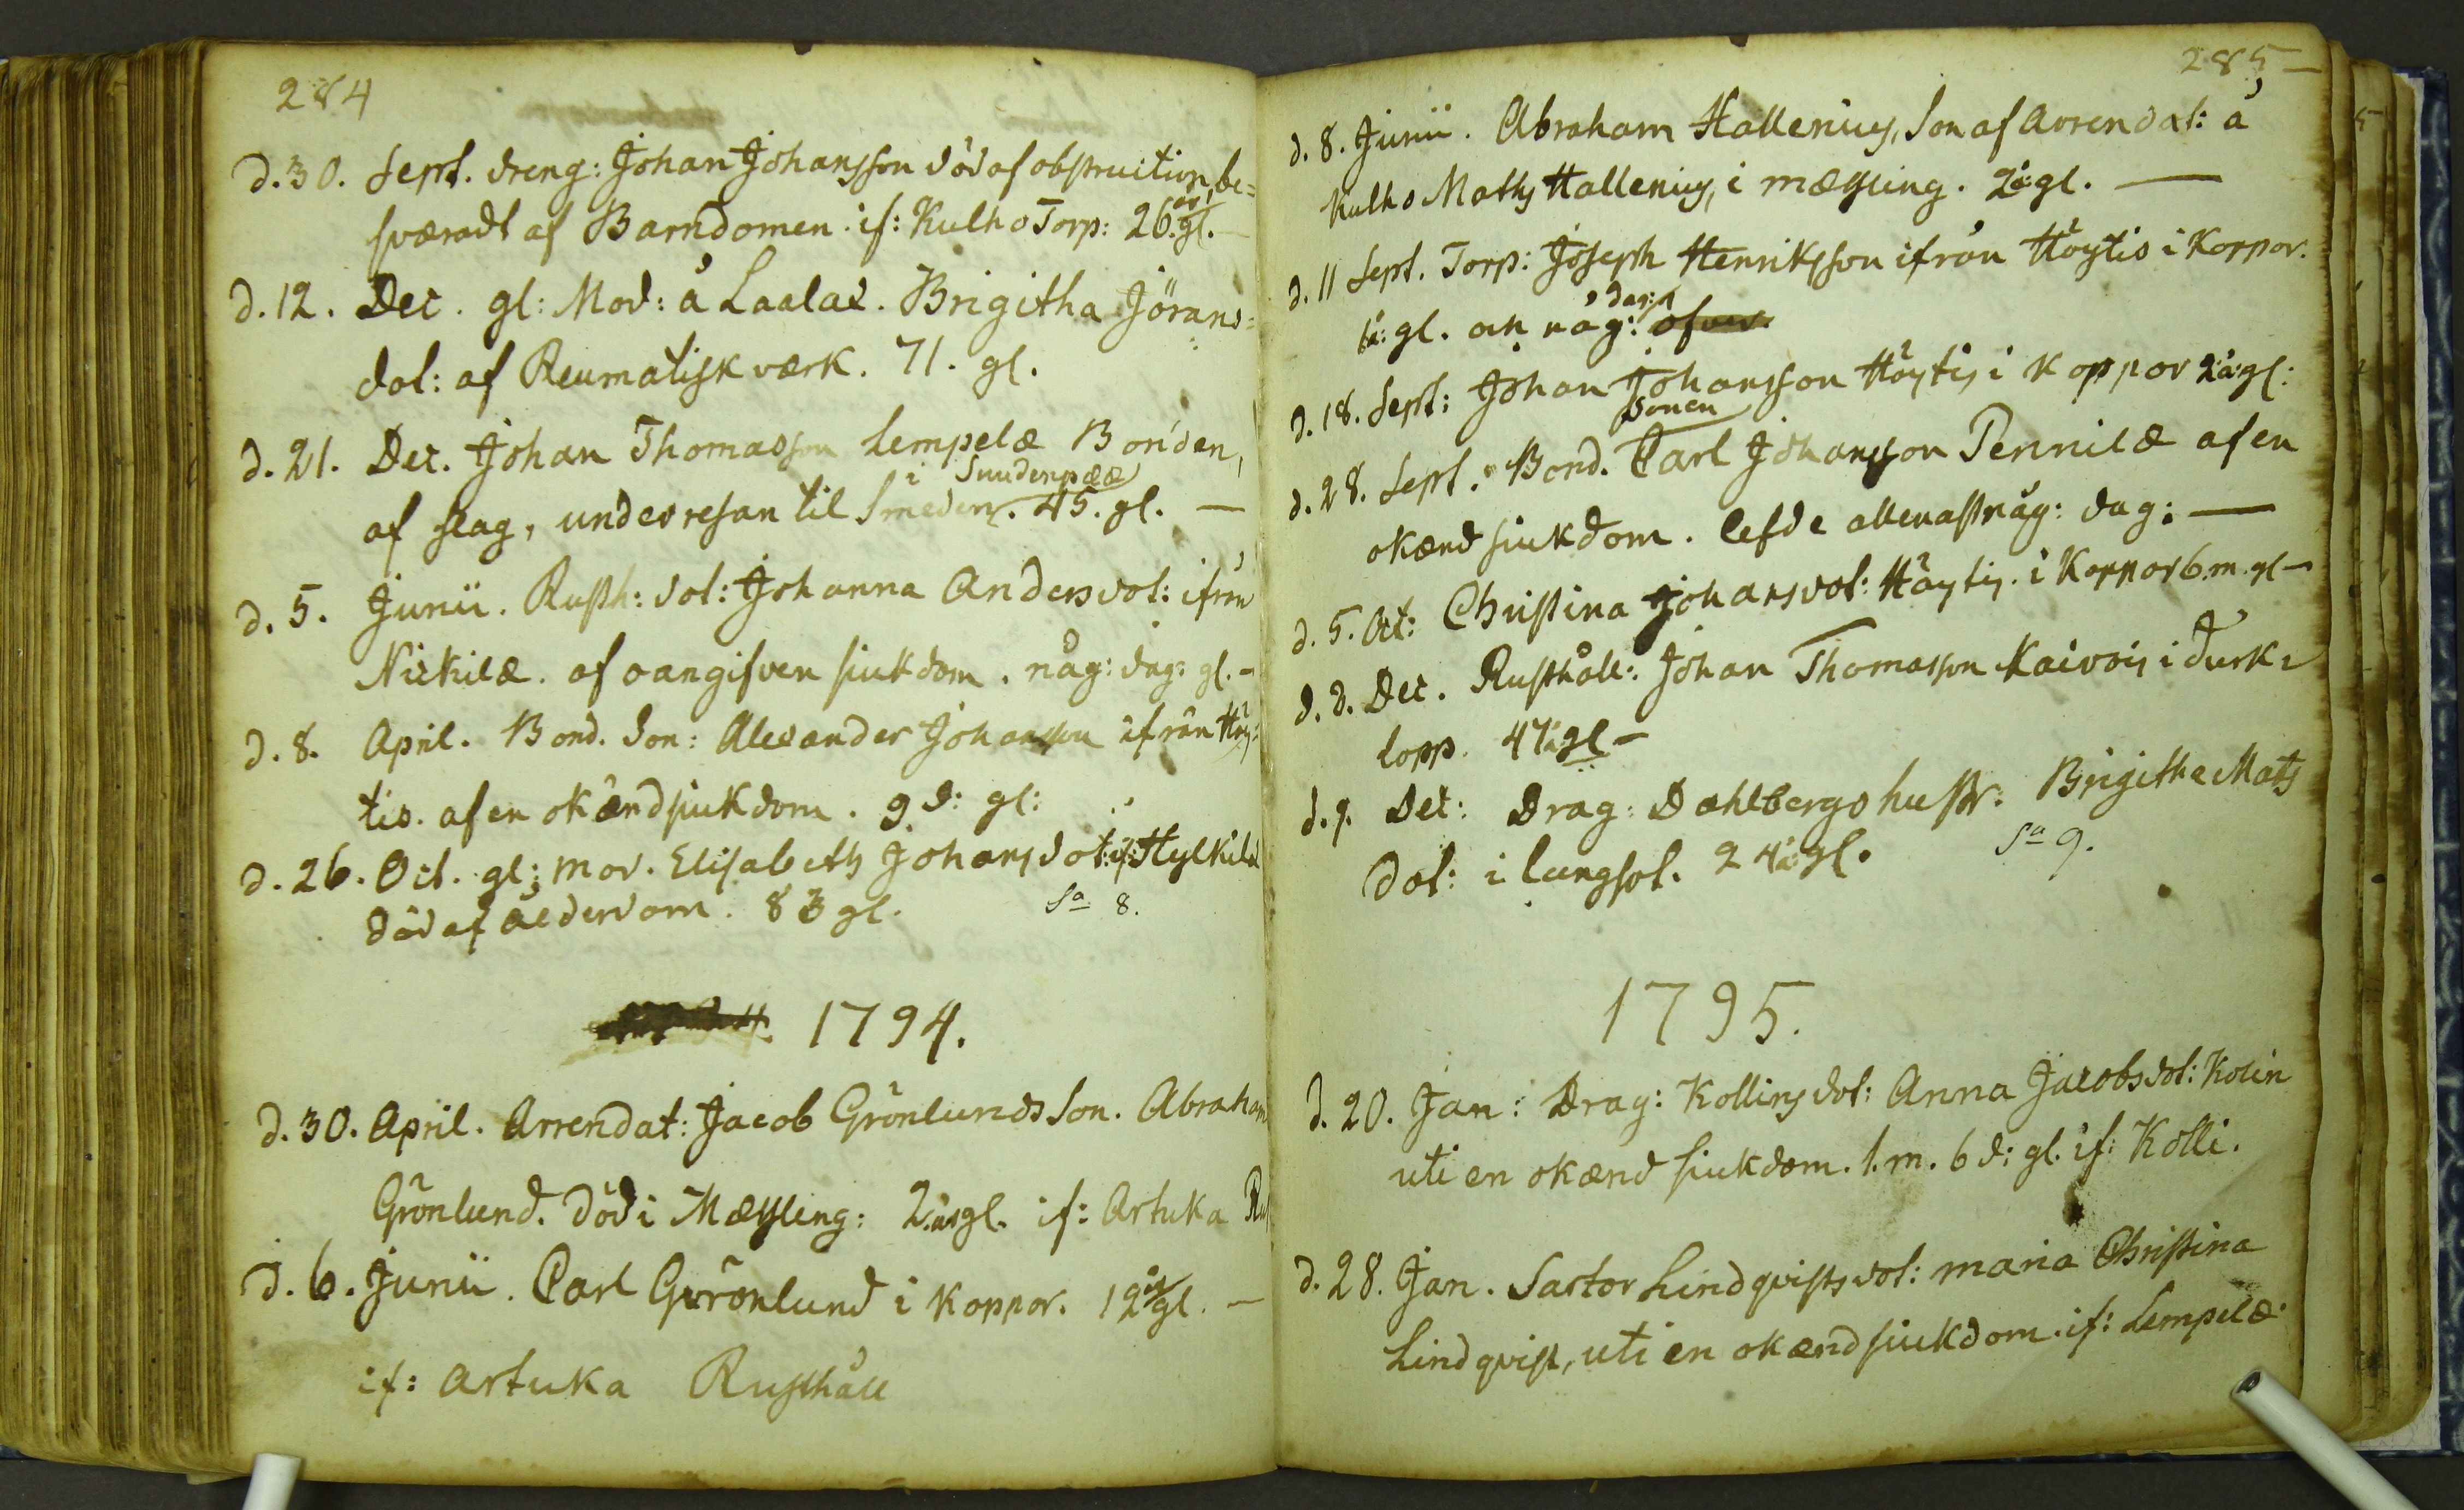 284
d. 30. Sept. dreng: Johan Johansson död af obstruction, be=
sværadt af Barndomen. if: Kulho Torp: 26. år gl.
d. 12. Dec. gl: Mod: å Laalax. Brigitha Jörans=
dot: af Reumatisk værk. 71. gl.
d. 21. Dec. Johan Thomasson Lempelæ Bonden,
i Suudenpää
af slag, under resan til Smeden. 45. gl. —
d. 5. Junii. Rusth: dot: Johanna Andersdot: ifrån
Niskilæ. af oangifven siukdom. någ: dag: gl. -
d. 8. April. Bond. Son: Alexander Johansson ifrån Höy=
tis. af en okænd siukdom. 9 d: gl:
d. 26. Oct. gl: mor. Elisabeth Johansdot: if: Hylkilæ
död af ålderdom. 83 gl. Sa 8.
1794.
d. 30. April. Arrendat: Jacob Grönlunds Son. Abraham
Grönlund. död i Mæssling: 2 år gl. if: Artuka Ru
d. 6. Junii. Carl Grönlund i Koppor. 12 år gl. —
if: Artuka Rusthåll
285 —
d. 8. Junii. Abraham Hallenius, Son af Arrendat: å
Kulho Maths Hallenius, i mæssling. 2 å: gl. —
d. 11 Sept. Torp: Joseph Henriksson ifrån Höytis i Koppor.
dag:
6 å: gl. och någ: ofver.
d. 18. Sept: Johan Johansson Höytis i Koppor 2 å: gl:
Sonen
d. 28. Sept. Bond. Carl Johansson Pennilæ af en
okænd siukdom. lefde allenast någ: dag: —
d. 5. Oct: Christina Johansdot: Höytis i Koppor 6. m. gl —
d. d. Dec. Rusthåll: Johan Thomasson Kaivois i Durk=
lopp. 47 å: gl —
d. 9. Dec: Drag: Dahlbergs hustr: Brigitha Mats
dot: i lungsot. 24 å: gl. Sa 9.
1795.
d. 20. Jan: Drag: Kollins dot: Anna Jacobsdot: Kolin
uti en okænd siukdom. 1. m. 6 d: gl. if: Kolli.
d. 28. Jan. Sactor Lindqvists dot: maria Christina
Lindqvist, uti en okænd siukdom. if: Lempelæ.